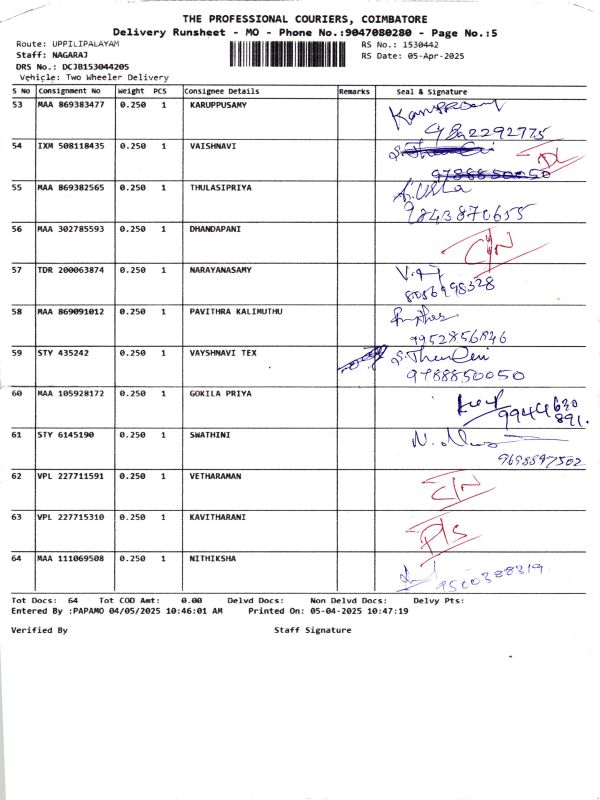 THE PROFESSIONAL COURIERS, COIMBATORE
Delivery Runsheet - MO - Phone No.:9047080280 - Page No.:5
Route: UPPILIPALAYAM RS No.: 1530442
Staff: NAGARAJ RS Date: 05-Apr-2025
DRS No.: DCJB153044205
Vehicle: Two Wheeler Delivery
S No Consignment No Weight PCS Consignee Details Remarks Seal & Signature
53 MAA 869383477 0.250 1 KARUPPUSAMY
54 IXM 508118435 0.250 1 VAISHNAVI
9788850050
55 MAA 869382565 0.250 1 THULASIPRIYA
9843870655
56 MAA 302785593 0.250 1 DHANDAPANI C/N
57 TDR 200063874 0.250 1 NARAYANASAMY
8056998328
58 MAA 869091012 0.250 1 PAVITHRA KALIMUTHU
9952856846
59 STY 435242 0.250 1 VAYSHNAVI TEX
9788850050
60 MAA 105928172 0.250 1 GOKILA PRIYA
9944 630
891.
61 STY 6145190 0.250 1 SWATHINI
9698897502
62 VPL 227711591 0.250 1 VETHARAMAN C/N
63 VPL 227715310 0.250 1 KAVITHARANI P/S
64 MAA 111069508 0.250 1 NITHIKSHA
9500388319
Tot Docs: 64 Tot COD Amt: 0.00 Delvd Docs: Non Delvd Docs: Delvy Pts:
Entered By :PAPAMO 04/05/2025 10:46:01 AM Printed On: 05-04-2025 10:47:19
Verified By Staff Signature